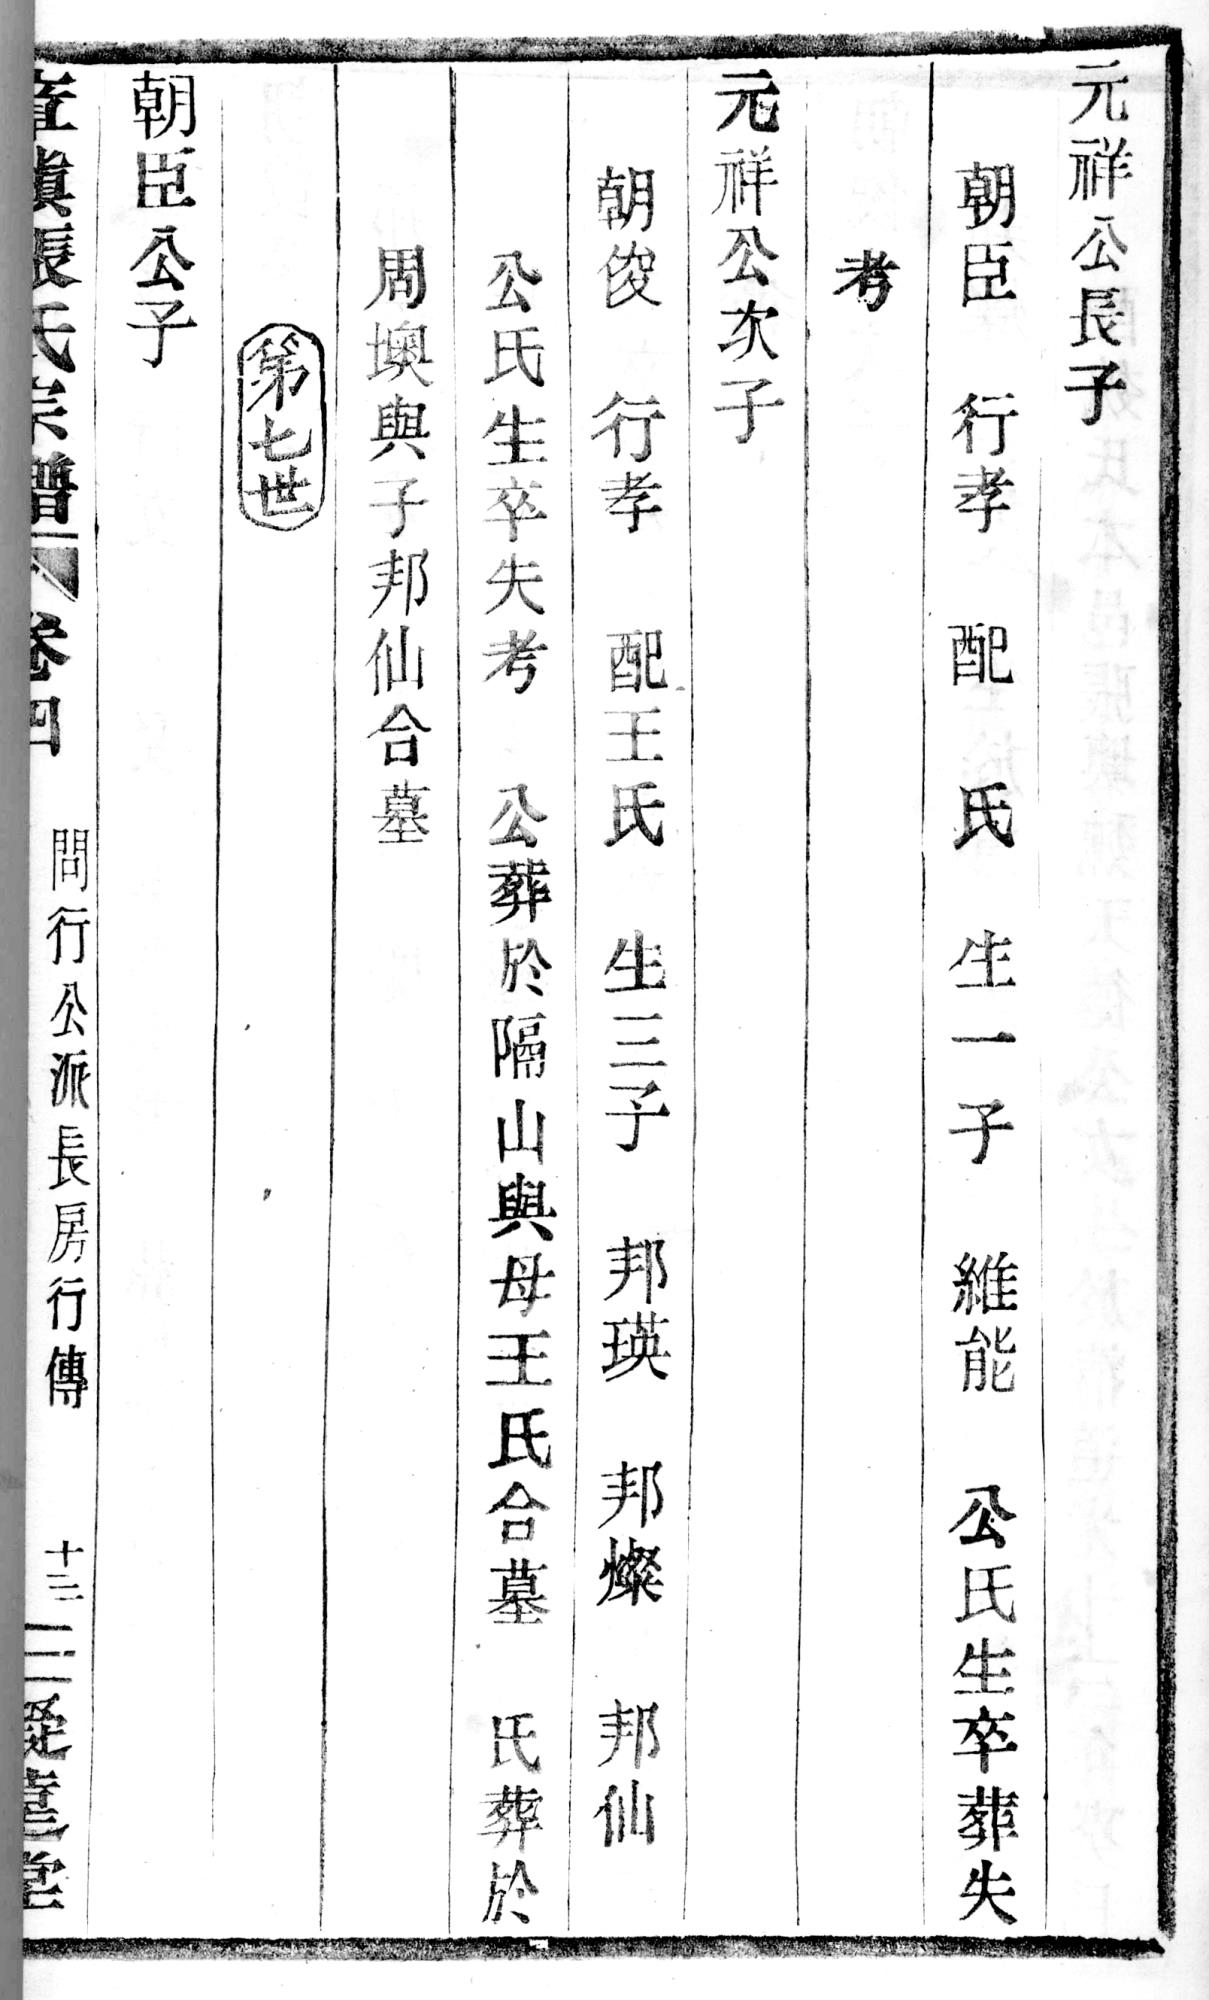 元祥公長子
朝臣　行孝　配　氏　生一子　維能　公氏生卒葬失
考
元祥公次子
朝俊　行孝　配王氏　生三子　邦瑛　邦燦　邦仙
公氏生卒失考　公葬於隔山與母王氏合墓　氏葬於
周墺與子邦仙合墓
第七世
朝臣公子
張氏宗譜　卷四　問行公派長房行傳　十二　堂